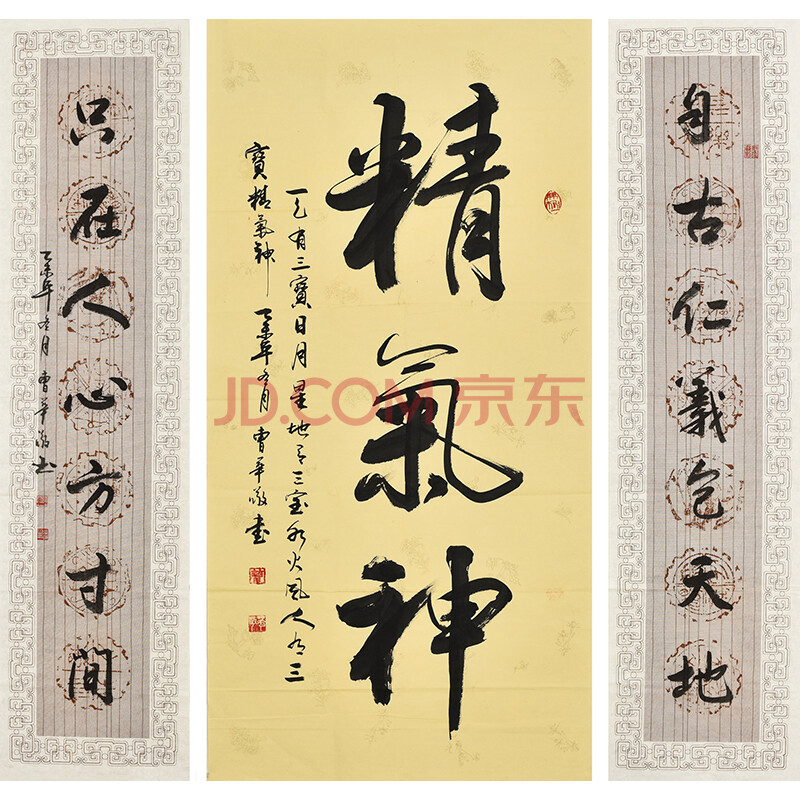 自古仁義包天地
精氣神
天有三寶日月星地有三宝水火风人有三
寶精氣神 乙未年 冬月 曹華敬書
只在人心方寸間
乙未年 冬月 曹華敬书
JD.COM 京东